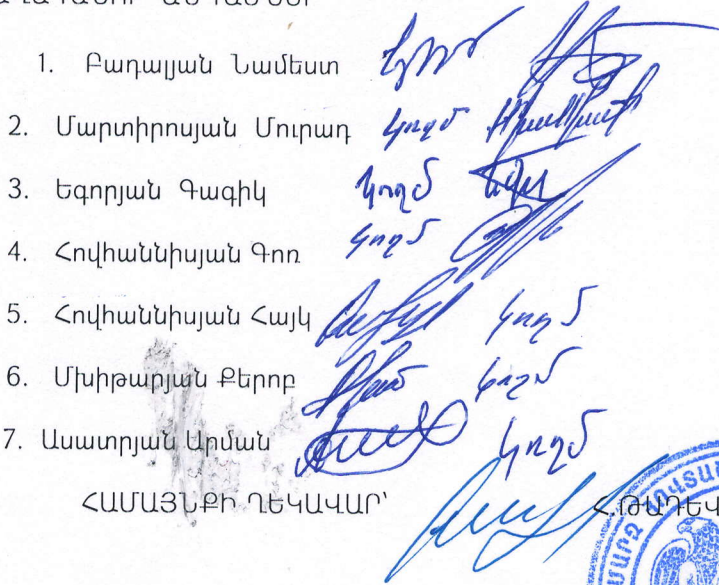 1. Բադալյան Նամեստ կողմ
2. Մարտիրոսյան Մուրադ կողմ
3. Եգորյան Գագիկ կողմ
4. Հովհաննիսյան Գոռ կողմ
5. Հովհաննիսյան Հայկ կողմ
6. Մխիթարյան Քերոբ կողմ
7. Ասատրյան Արման կողմ
ՀԱՄԱՅՆՔԻ ՂԵԿԱՎԱՐ՝ Հ.ԹԱԴԵՎ